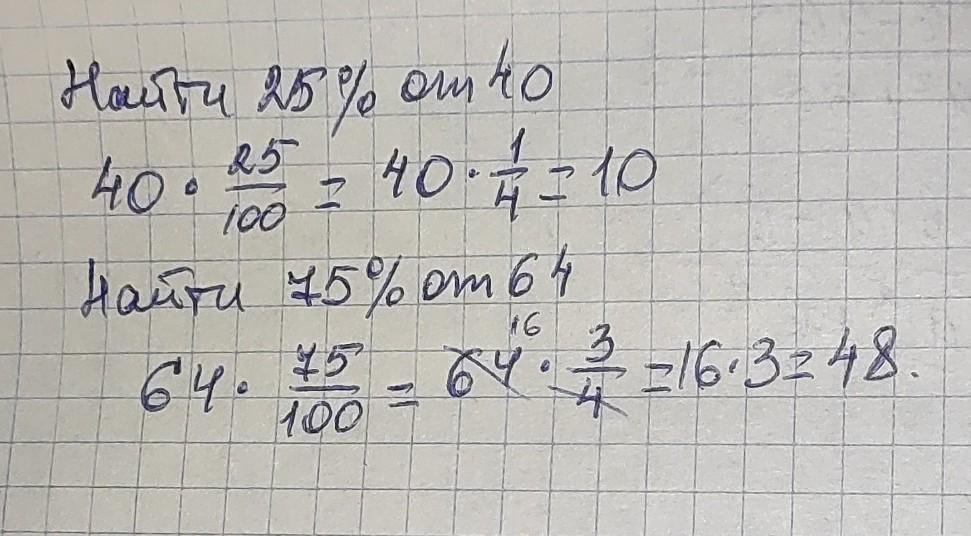 Найти 25% от 40
40 · 25/100 = 40 · 1/4 = 10
Найти 75% от 64
64 · 75/100 = 64 16 · 3/4 = 16 · 3 = 48.